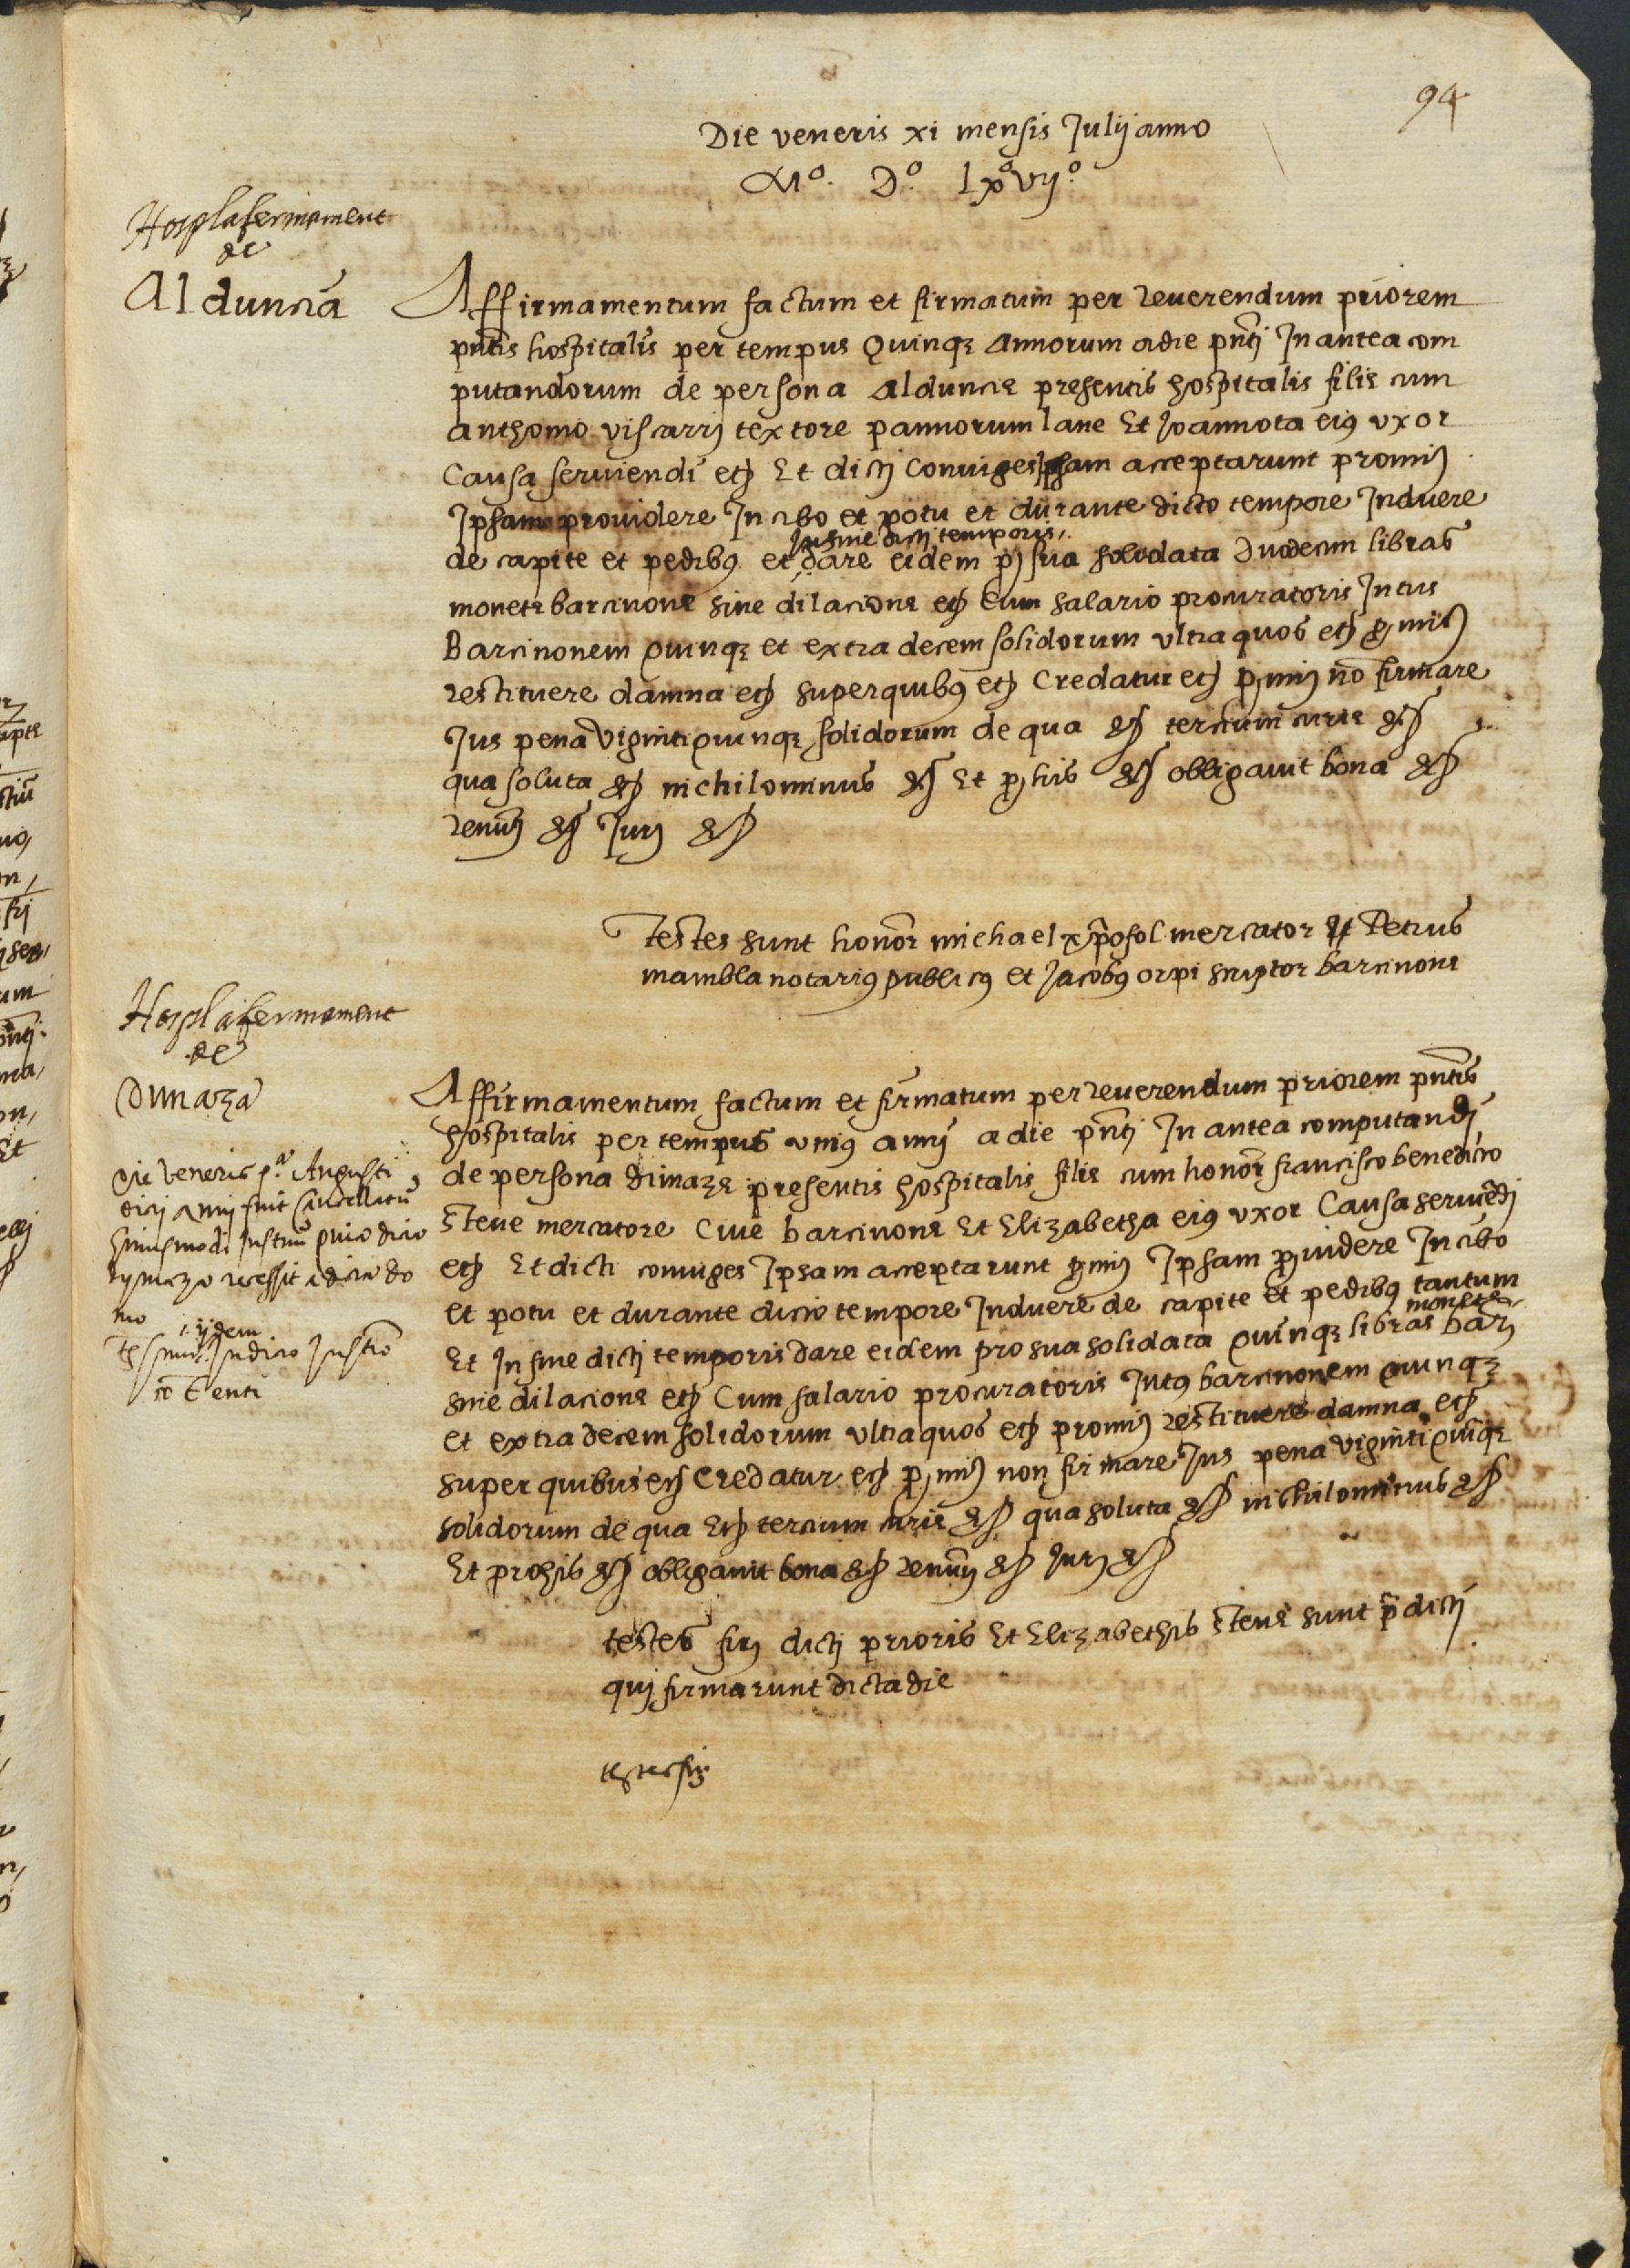 94
Die veneris xi mensis Julij anno
Mº. Dº. lxºvijº.
Hosplafermament
de
Alduncia
Affirmamentum factum et firmatum per reuerendum priorem
pntis hospitalis per tempus Quinqz Annorum adie pnti Inantea com
putandorum de persona alduncie presentis hospitalis filie cum
anthonio viscarrj textore pannorum lane Et Joannota eius vxor
Causa seruiendi etc Et dictj Coniuges Ipsam acceptarunt promis
Ipsam prouidere In cibo et potu et durante dicto tempore Induere
Infine dictj temporis
de capite et pedibus et dare eidem pro sua solidata Duodecim libras
monete barcinone sine dilacione etc Cum salario procuratoris Intus
Barcinonem quinqz et extra decem solidorum vltra quos etc promis
restituere damna etc super quibus etc Credatur etc promis no firmare
Jus pena viginti quinqz solidorum de qua etc tercium curie etc
qua soluta etc nichilominus etc Et pro his etc obligauit bona etc
renuns etc Jurs etc
Testes sunt honor michael xpofol mercator et Petrus
mambla notarius publicus et Jacobus orpi scriptor barcinone
Hosplafermament
de
Dimaza
Affirmamentum factum et firmatum per reuerendum priorem pntis
hospitalis per tempus vnius annj a die pnti In antea computandj
de persona dimaze presentis hospitalis filie cum honor francisco benedicto
steue mercatore Ciue barcinone Et Elizabetha eius vxor Causa seruiedj
etc Et dicti coniuges Ipsam acceptarunt promis Ipsam prouidere In cibo
et potu et durante dicto tempore Induere de capite et pedibus tantum
monete
Et In fine dictj temporis dare eidem pro sua solidata quinqz libras bars
sine dilacione etc Cum salario procuratoris Intus barcinonem quinqz
et extra decem solidorum vltra quos etc promis restituere damna etc
super quibus etc Credatur etc promis non firmare Jus pena viginti quiqz
solidorum de qua etc tercium curie etc qua soluta etc nichilominus etc
Et pro his etc obligauit bona etc renuns etc Jurs etc
testes firs dictj prioris Et Elizabethis steue sunt pdictj
quj firmarunt dicta die
testes firs
Die Veneris pª Augusti
dicj annj fuit cancellatu
huiusmodi Instru quia dicta
dymaza recessit a dicta do
mo
ijdem
tes sunt In dicto Instro
cotenti